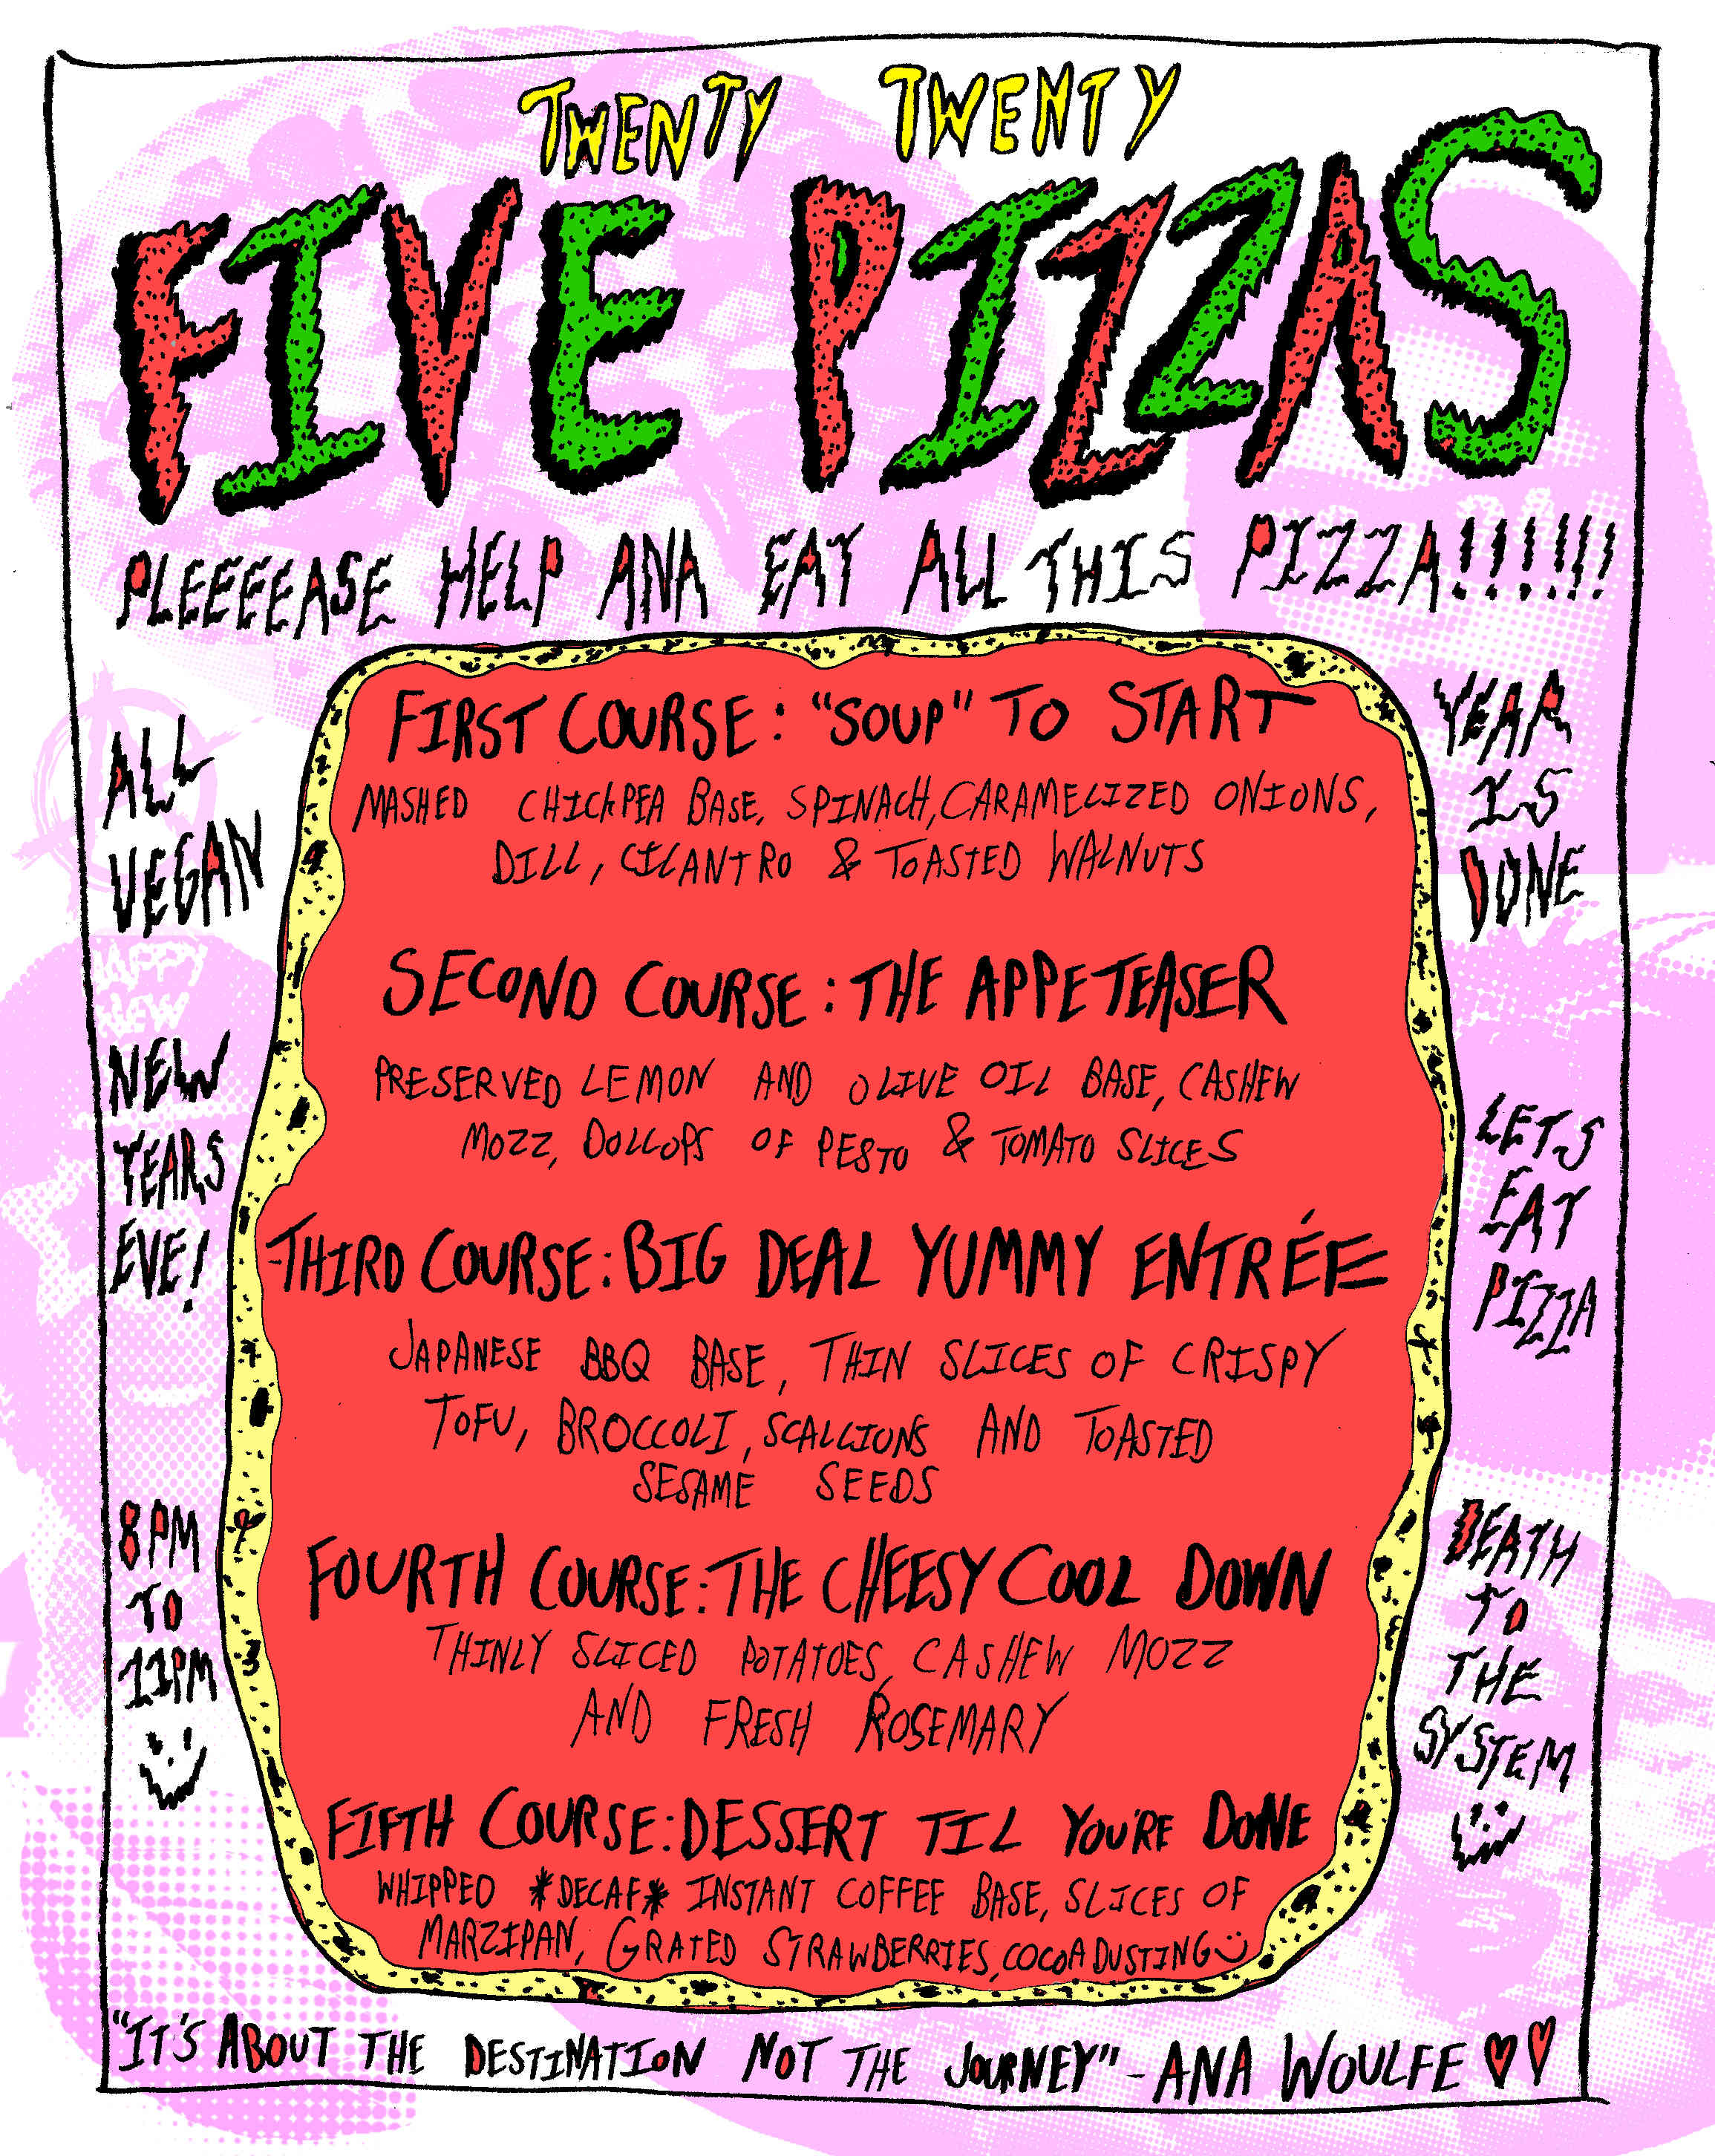 TWENTY TWENTY
FIVE PIZZAS
PLEEEEASE HELP ANA EAT ALL THIS PIZZA!!!!!!
ALL
VEGAN
HAPPY
NEW
NEW
YEARS
EVE!
8PM
TO
11PM
FIRST COURSE: "SOUP" TO START
MASHED CHICKPEA BASE, SPINACH, CARAMELIZED ONIONS,
DILL, CILANTRO & TOASTED WALNUTS
SECOND COURSE: THE APPETEASER
PRESERVED LEMON AND OLIVE OIL BASE, CASHEW
MOZZ, DOLLOPS OF PESTO & TOMATO SLICES
THIRD COURSE: BIG DEAL YUMMY ENTRÉE
JAPANESE BBQ BASE, THIN SLICES OF CRISPY
TOFU, BROCCOLI, SCALLIONS AND TOASTED
SESAME SEEDS
FOURTH COURSE: THE CHEESY COOL DOWN
THINLY SLICED POTATOES, CASHEW MOZZ
AND FRESH ROSEMARY
FIFTH COURSE: DESSERT TIL YOU'RE DONE
WHIPPED *DECAF* INSTANT COFFEE BASE, SLICES OF
MARZIPAN, GRATED STRAWBERRIES, COCOA DUSTING
YEAR
IS
DONE
LETS
EAT
PIZZA
DEATH
TO
THE
SYSTEM
"IT'S ABOUT THE DESTINATION NOT THE JOURNEY" - ANA WOULFE